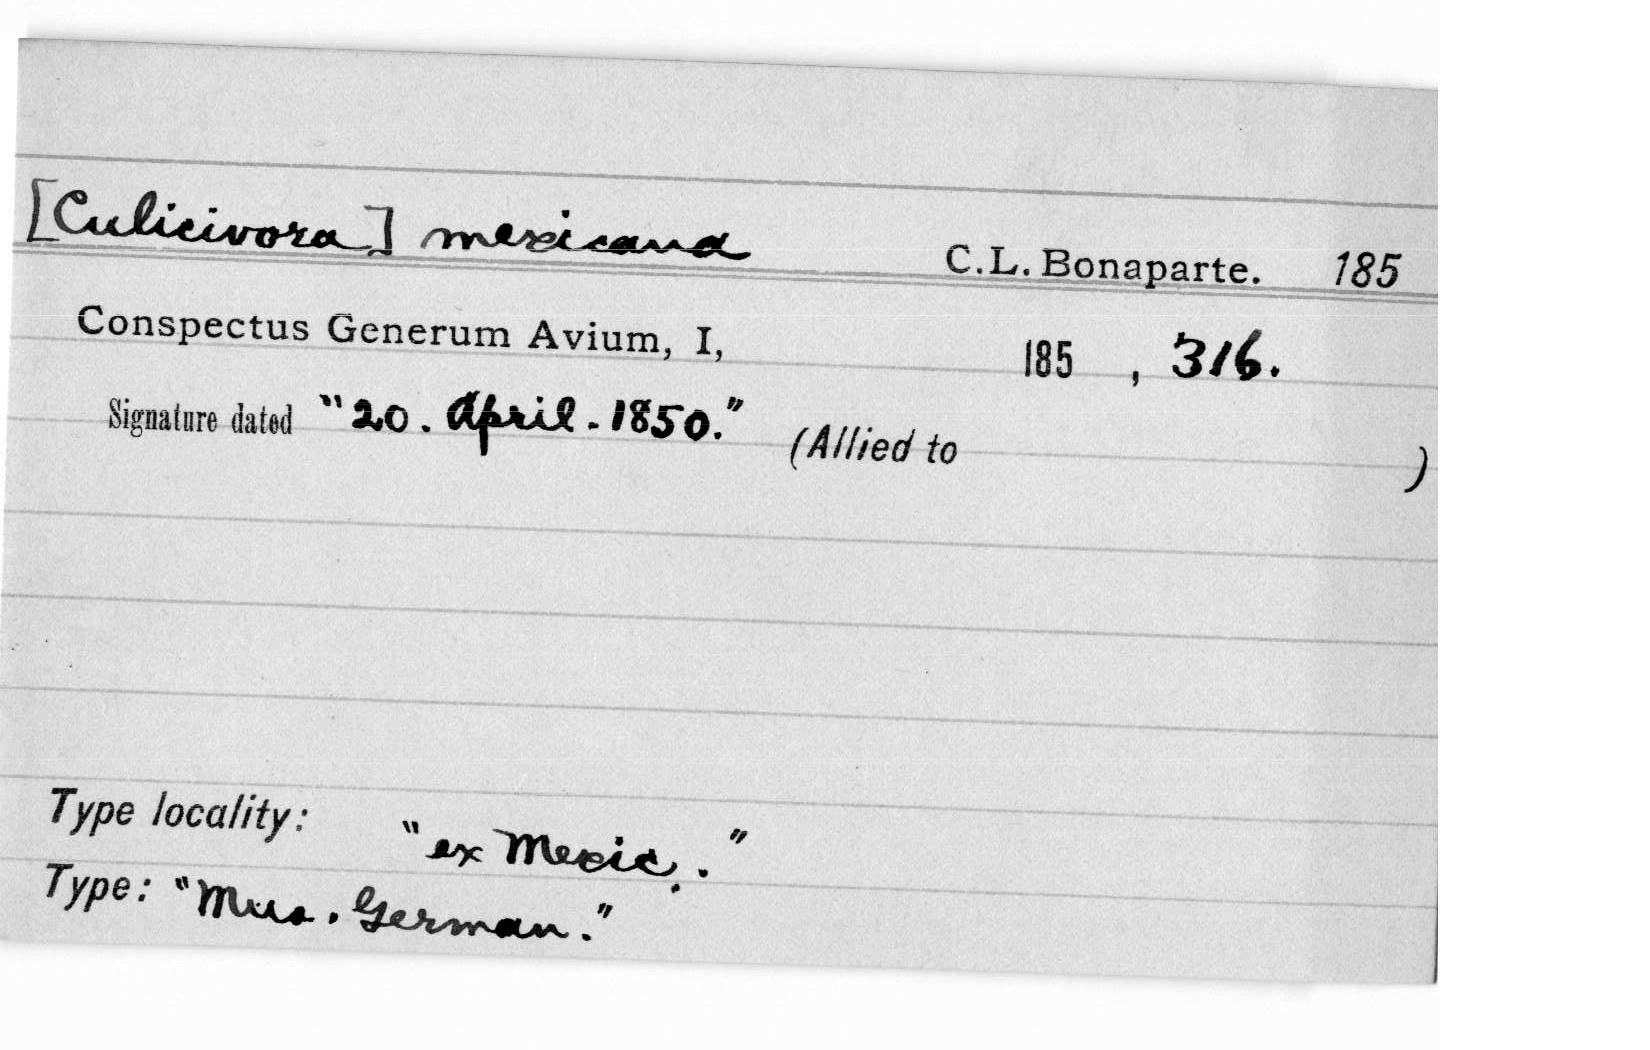 [Culicivora] mexicana C.L. Bonaparte. 185
Conspectus Generum Avium, I, 185 , 316.
Signature dated "20. April. 1850." (Allied to )
Type locality: "ex Mexic.."
Type: "Mus. German."